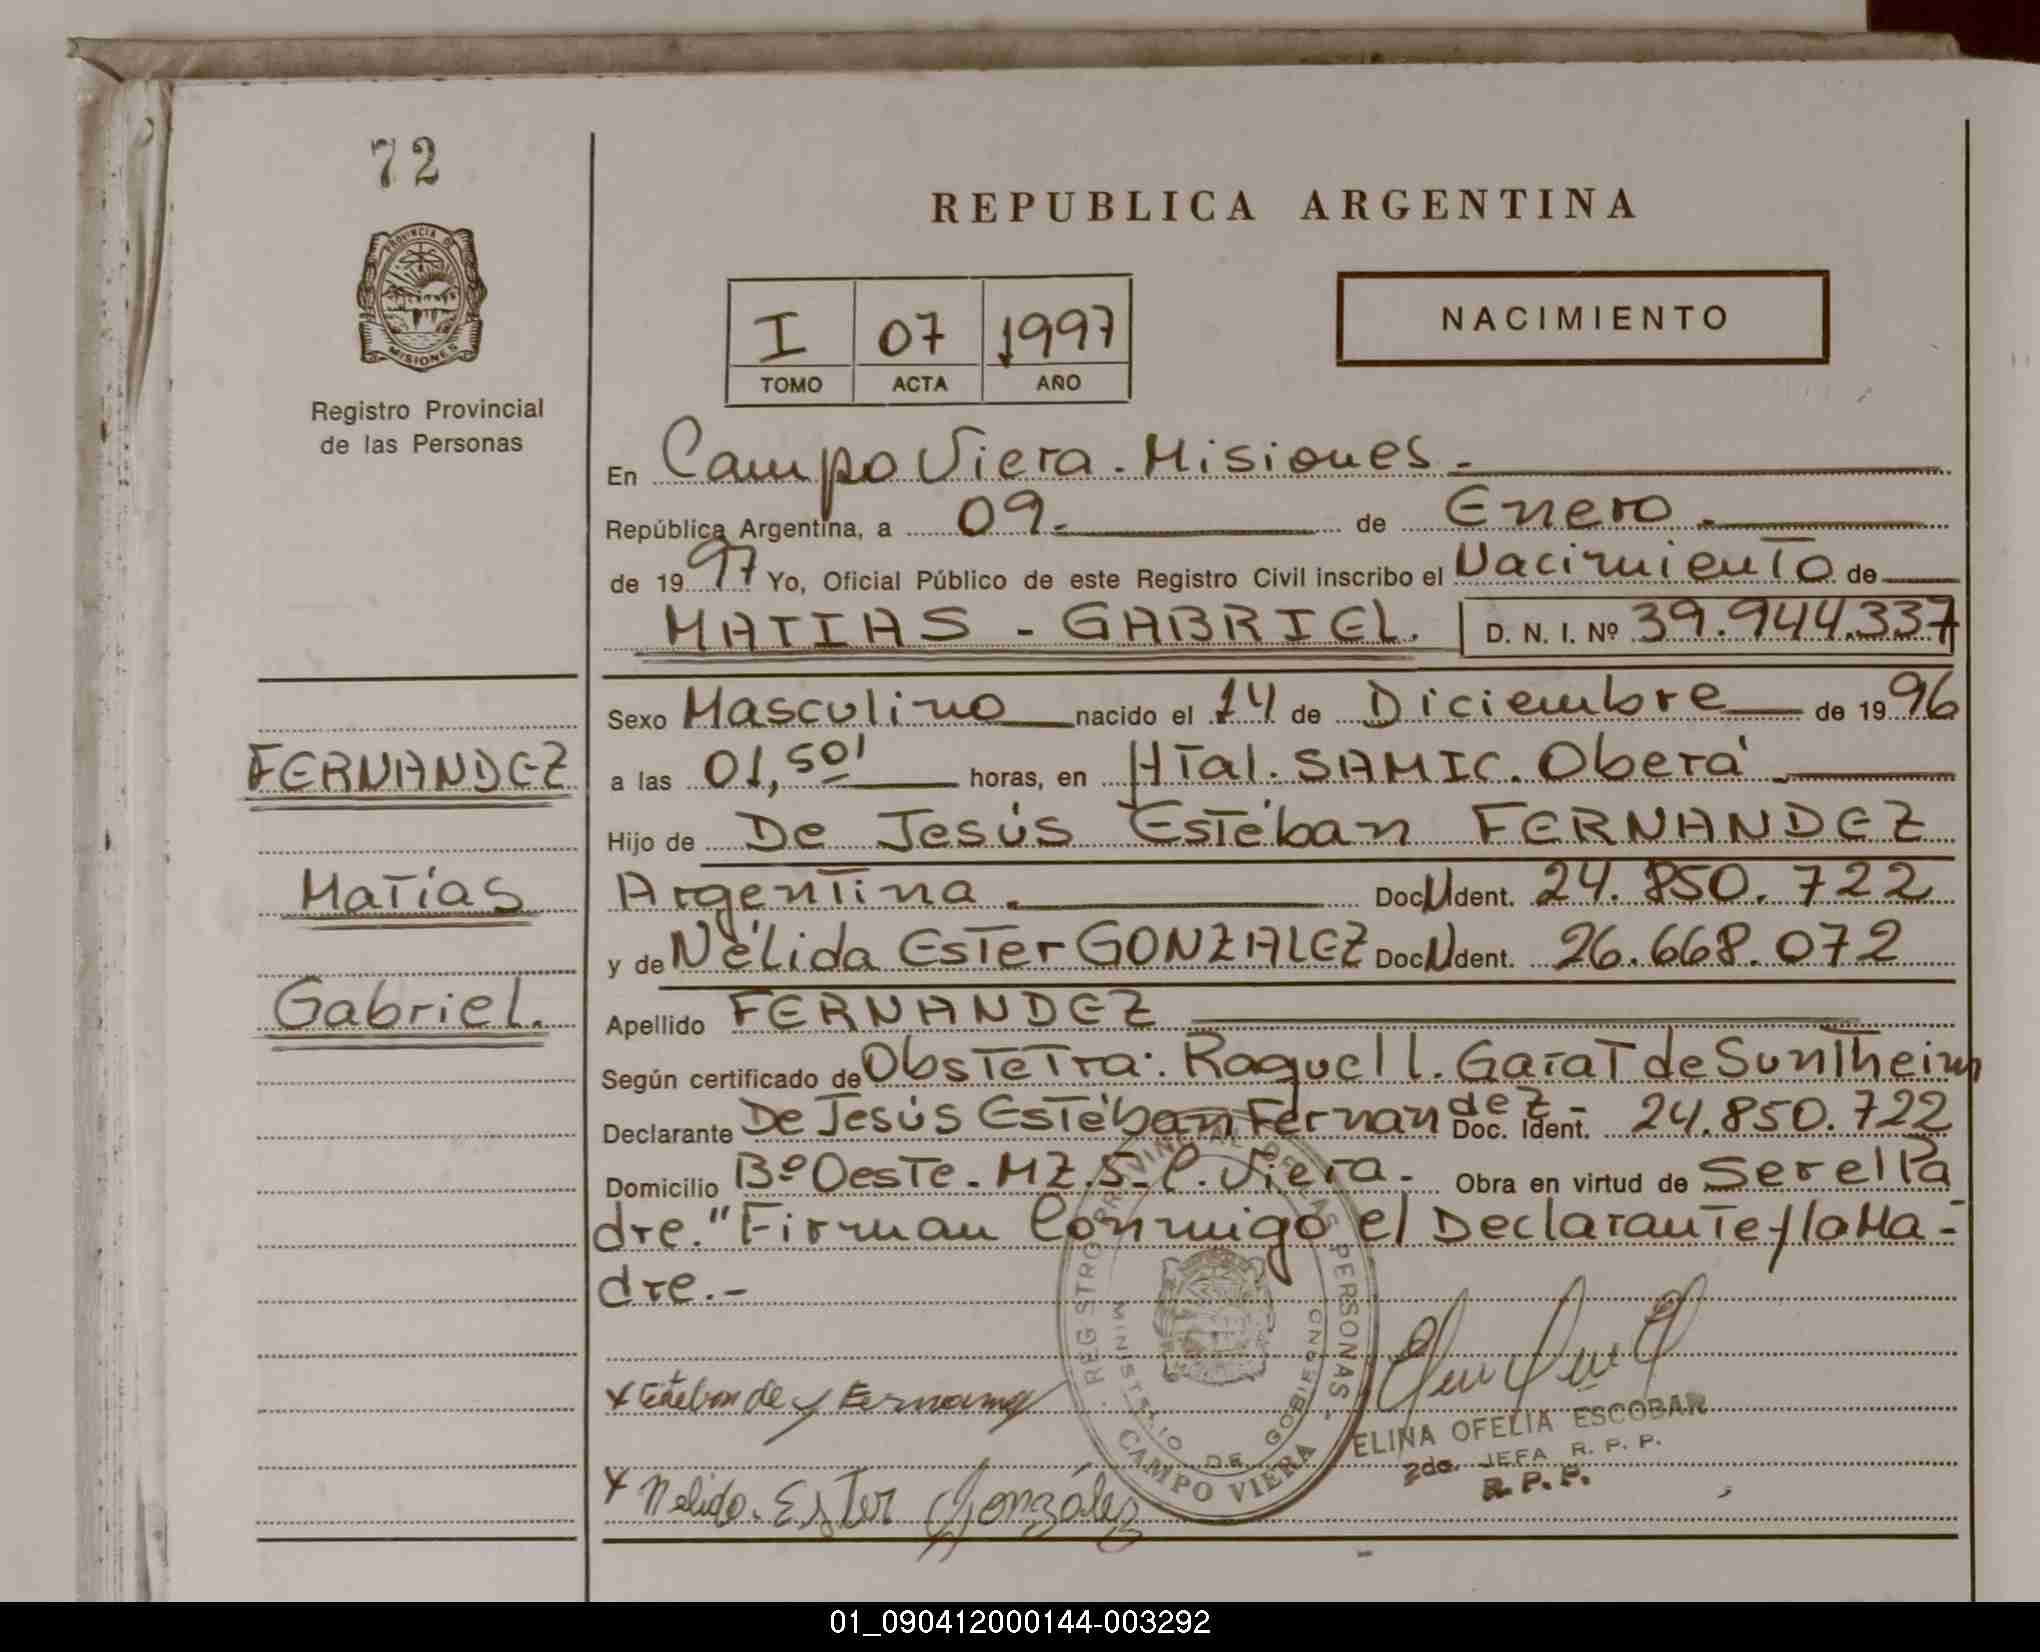 72
REPUBLICA ARGENTINA
PROVINCIA DE
MISIONES
Registro Provincial
de las Personas
I 07 1997
TOMO ACTA AÑO
NACIMIENTO
En Campo Viera - Misiones -
República Argentina, a 09- de Enero -
de 1997 Yo, Oficial Público de este Registro Civil inscribo el Nacimiento de
MATIAS - GABRIEL. D. N. I. Nº 39.944.337
Sexo Masculino nacido el 14 de Diciembre de 1996
FERNANDEZ
a las 01,50' horas, en HTal. SAMIC. Oberá -
Hijo de De Jesús Estéban FERNANDEZ
Matías
Argentina. Doc N Ident. 24.850.722
y de Nélida Ester GONZALEZ Doc N Ident. 26.668.072
Gabriel.
Apellido FERNANDEZ
Según certificado de Obstetra: Raquel l. Garat de Suntheim
Declarante De Jesús Estéban Fernandez - Doc. Ident. 24.850.722
Domicilio Bº Oeste - MZ. 5 - C. Viera - Obra en virtud de Ser el Pa
dre." Firman Conmigo el Declarante y la Ma-
dre.-
REGISTRO PROVINCIAL DE LAS PERSONAS
MINISTERIO DE GOBIERNO
CAMPO VIERA
ELINA OFELIA ESCOBAR
2da. JEFA R. P. P.
R. P. P.
x Nelida Ester González
01_090412000144-003292